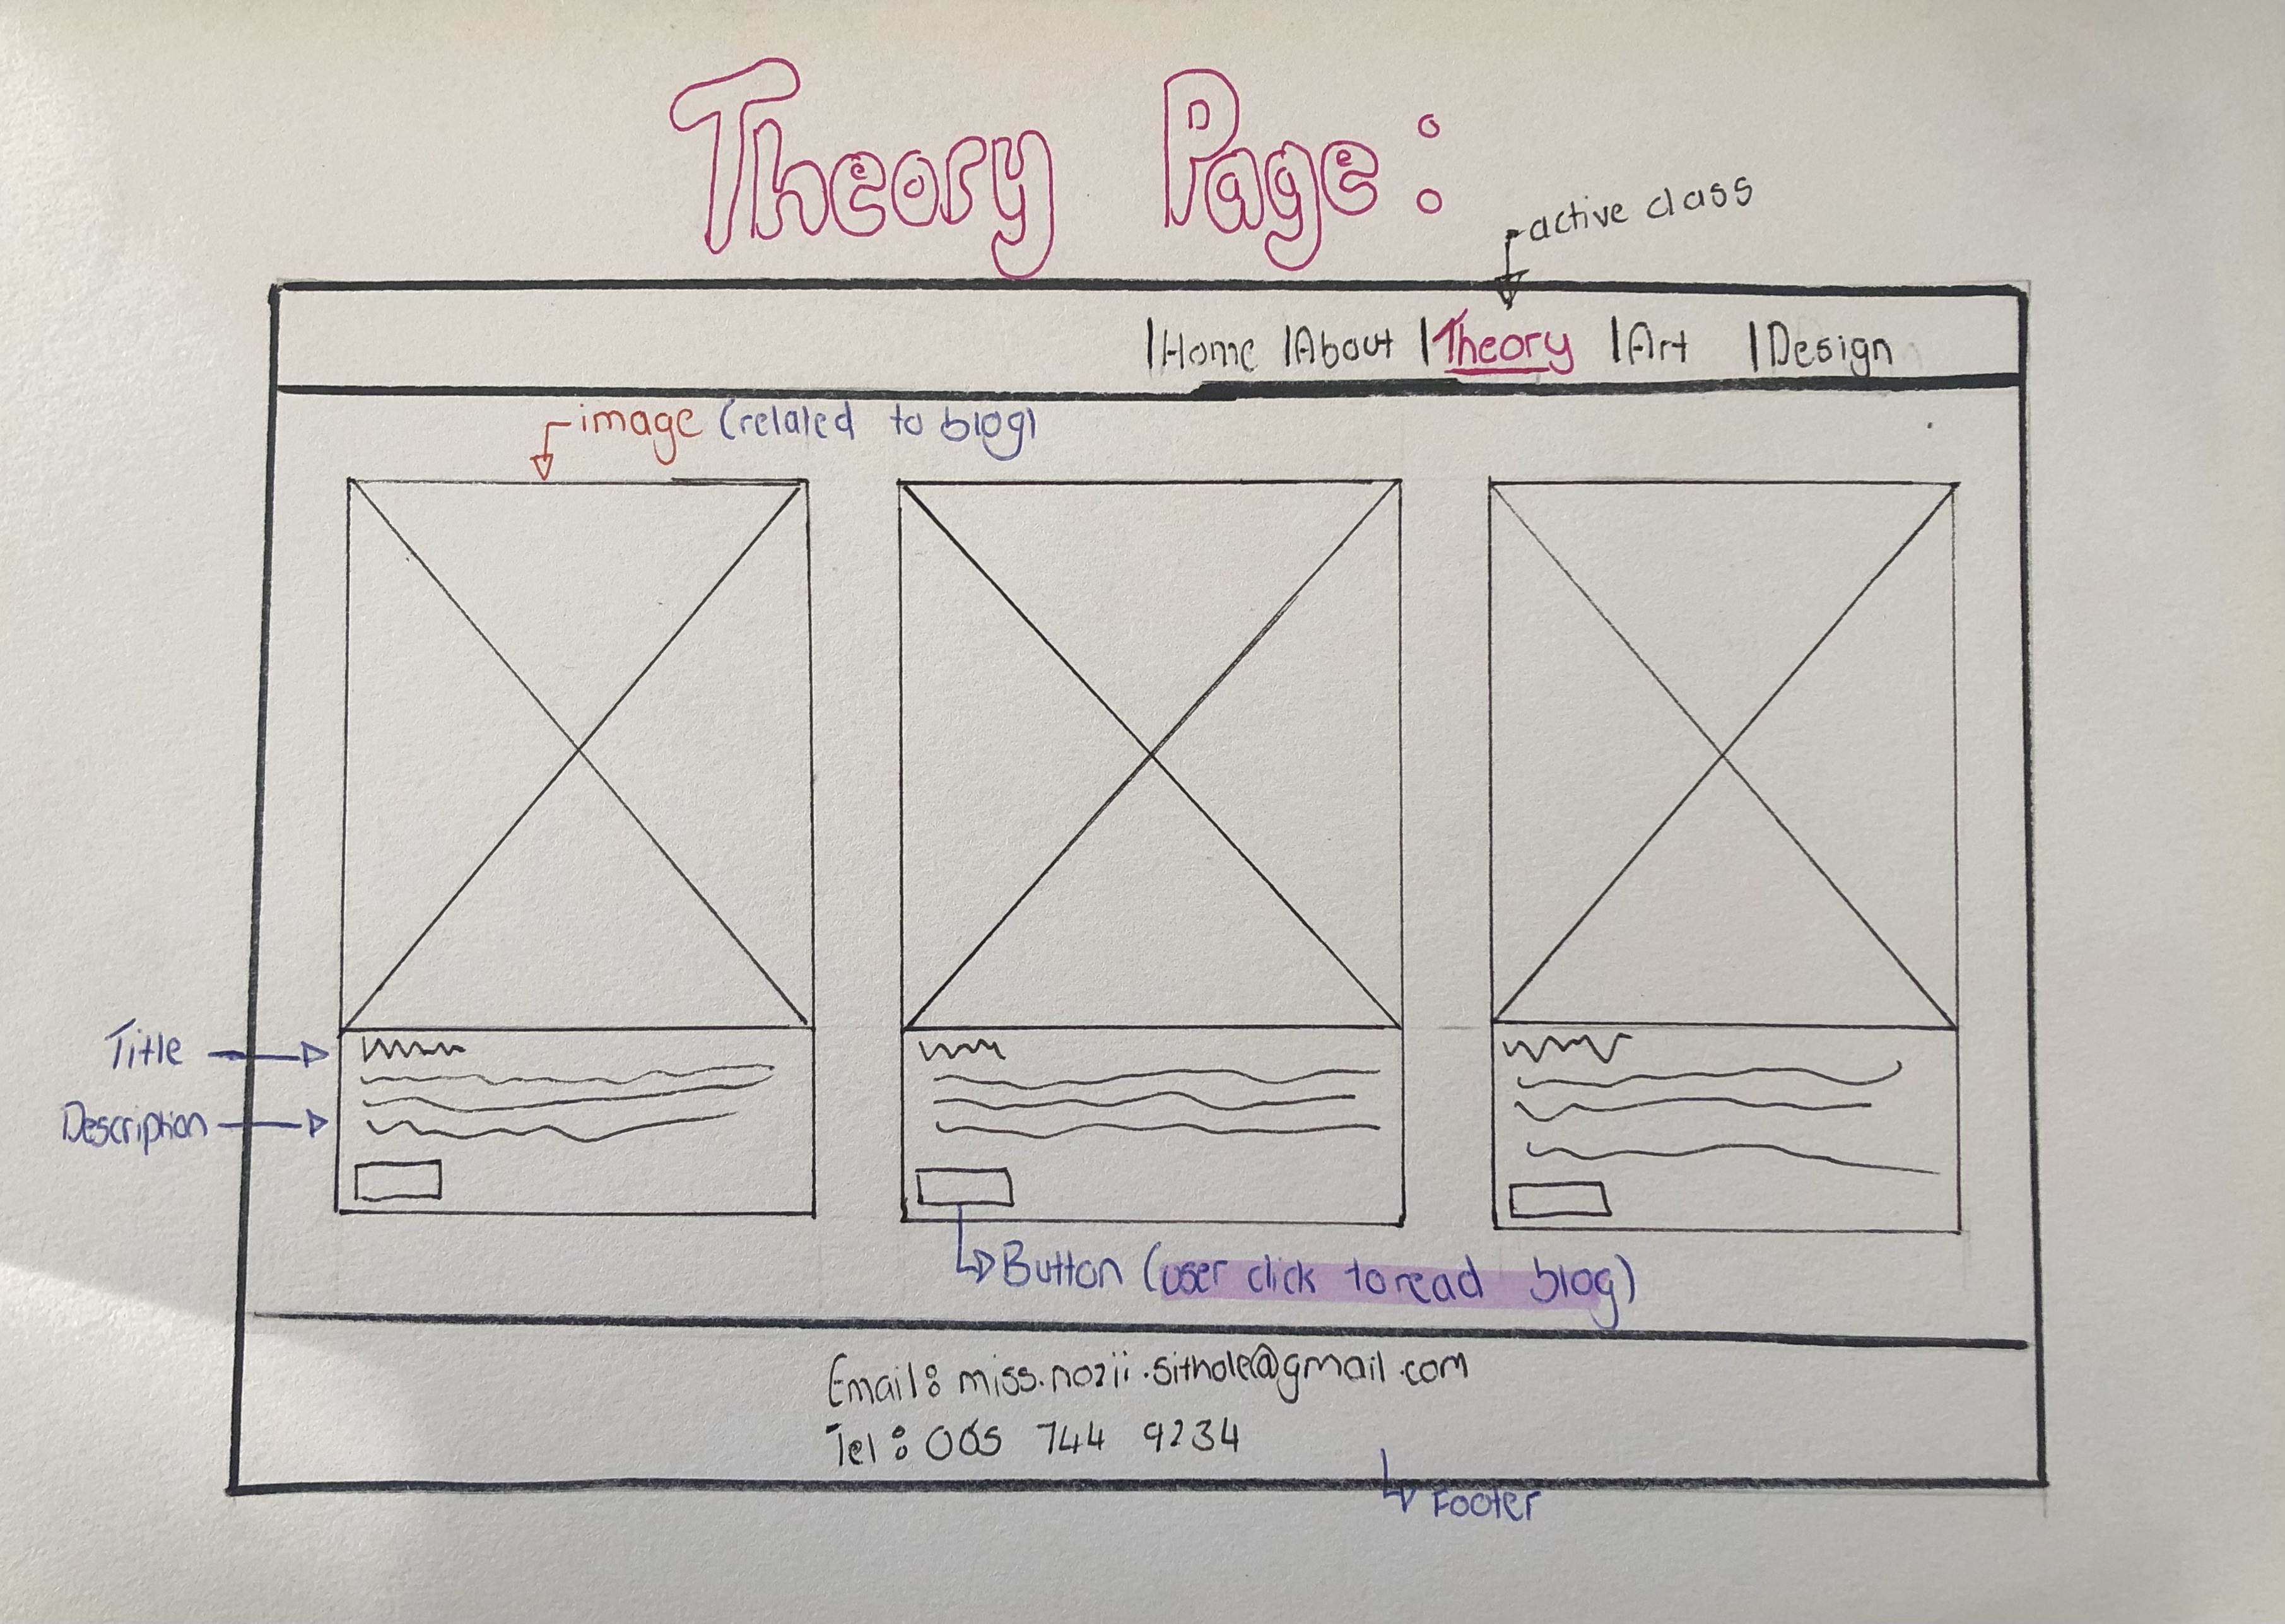 Theory Page:
active class
|Home |About |Theory |Art |Design
image (related to blog)
Title
Description
Button (user click to read blog)
Email: miss.nozii.sithole@gmail.com
Tel: 065 744 9234
Footer